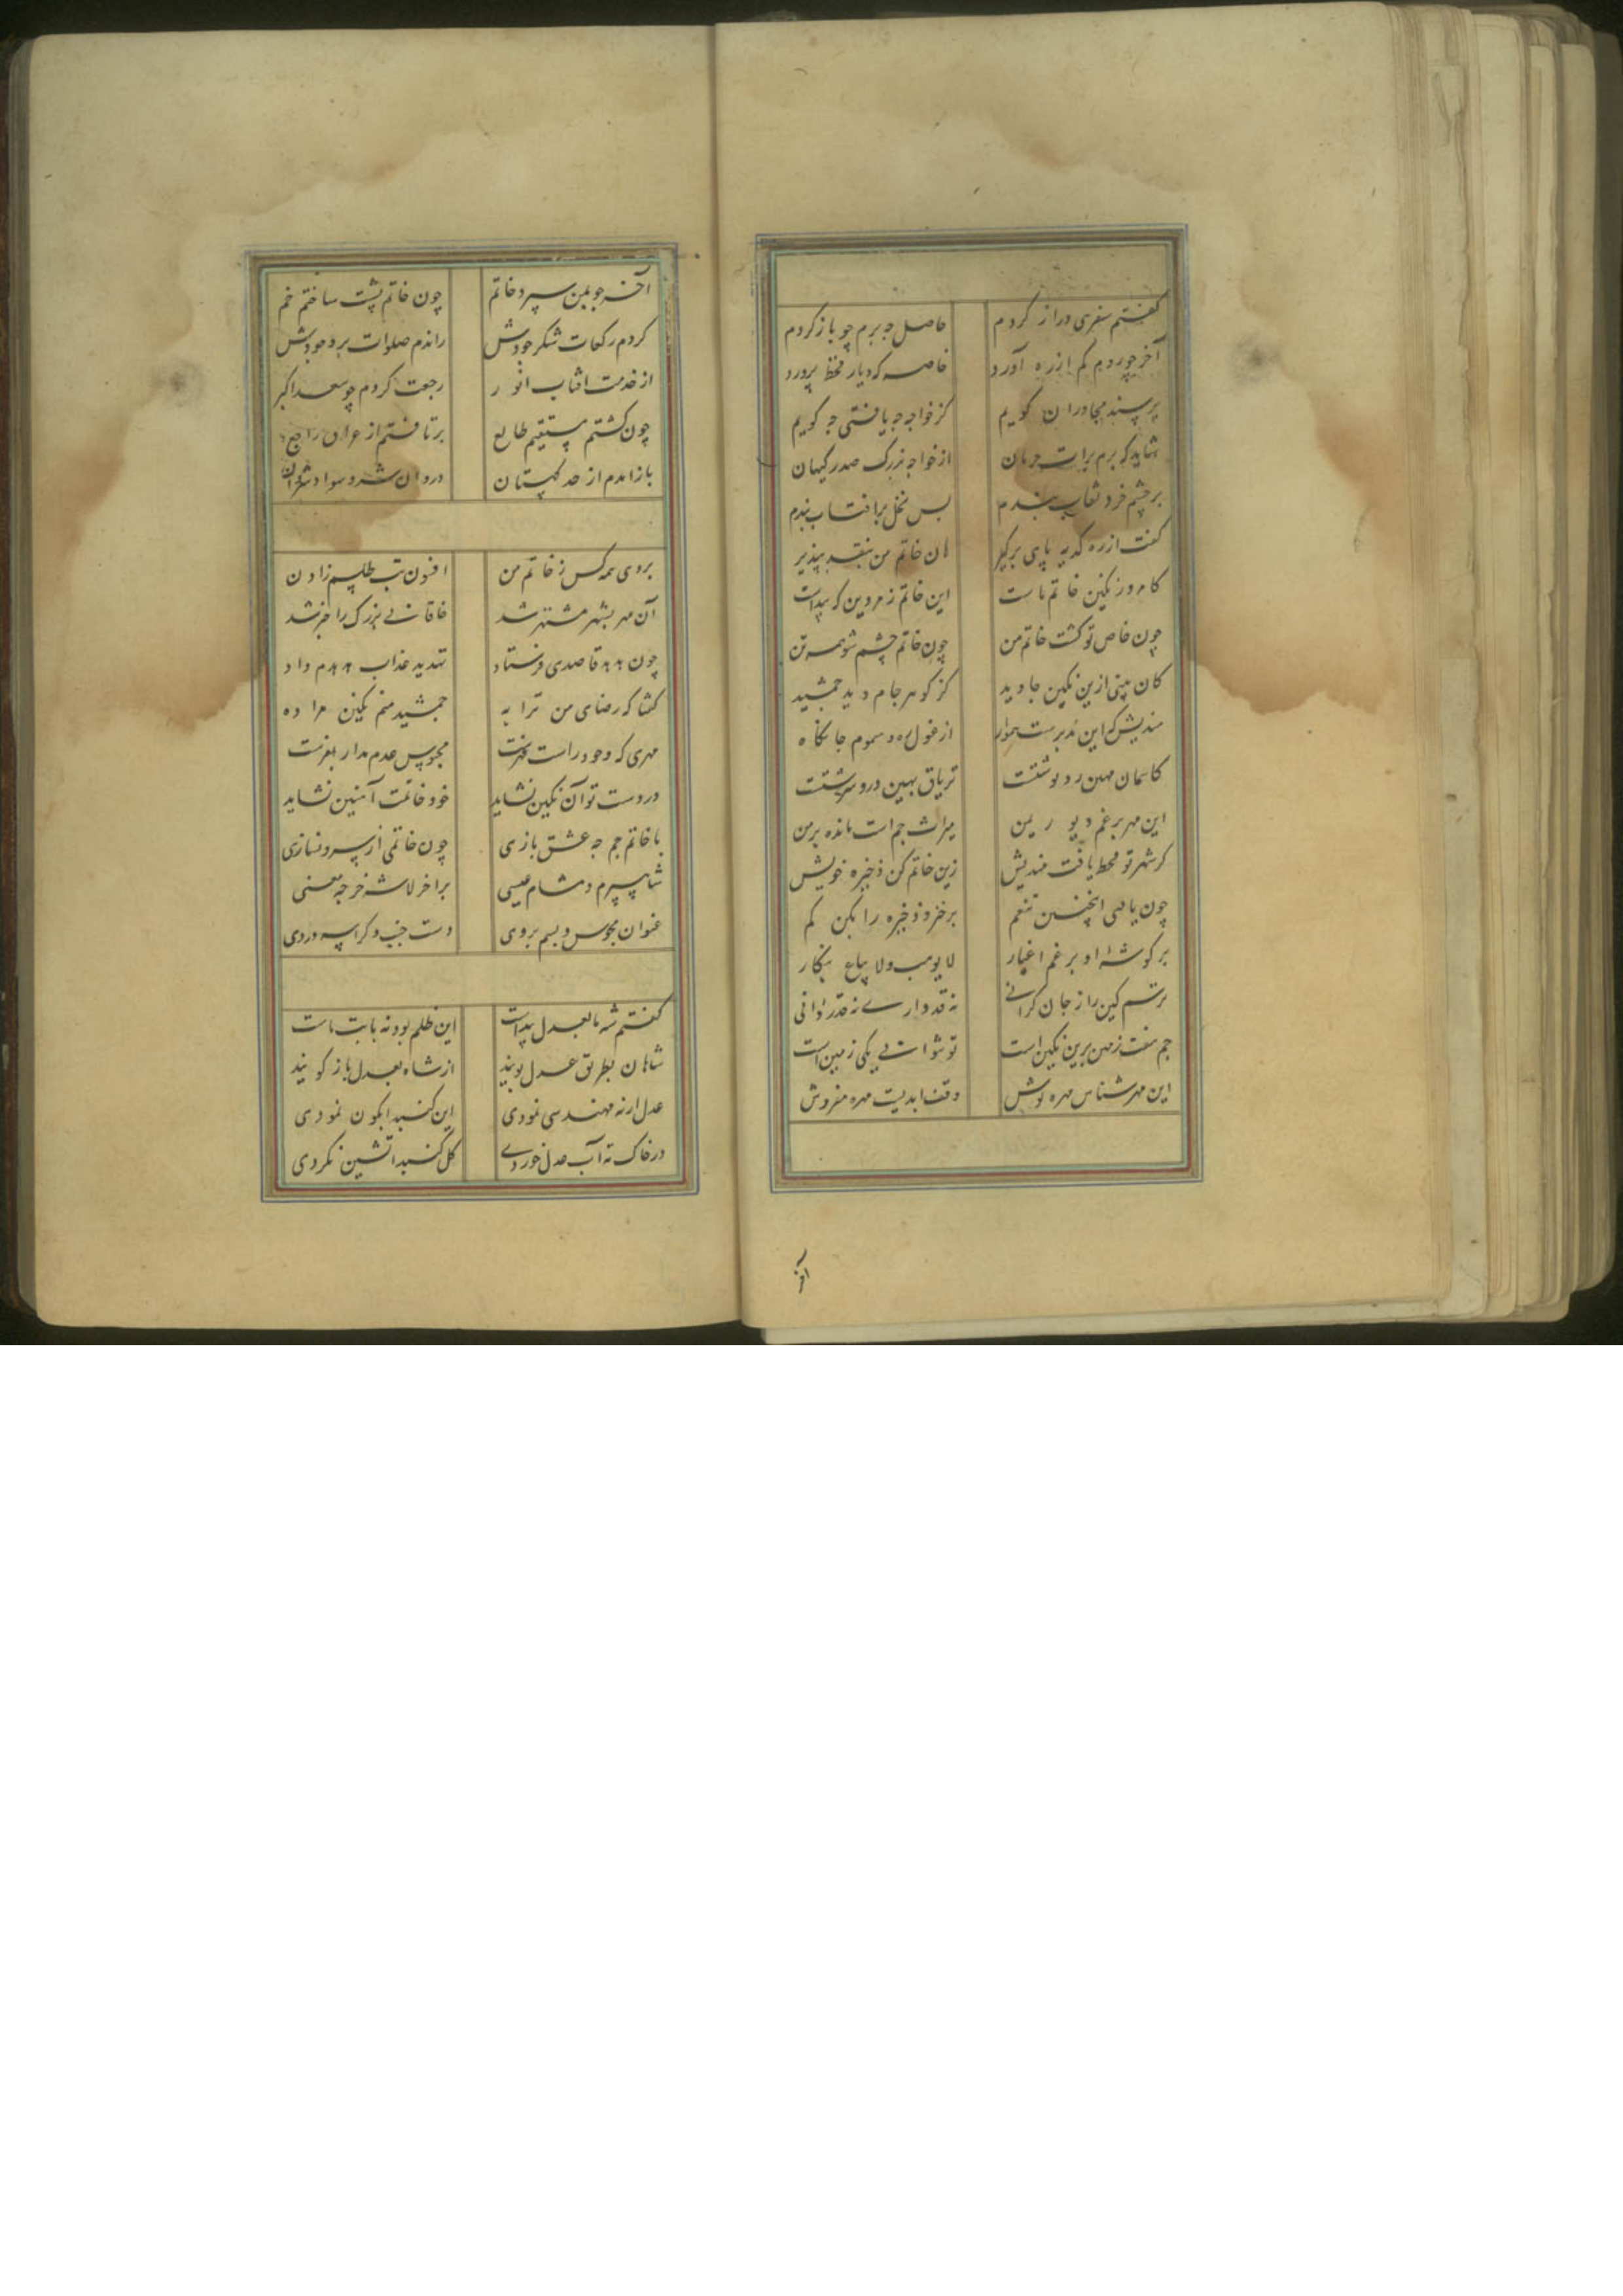 گفتم سفری دراز کردم حاصل چه برم چو باز کردم
آخر چو روم کم از ره آورد خاصه که دیار قحط پرورد
پرسند مجاوران کویم کز خواجه چه یافتی چه گویم
شاید که برم برات حرمان از خواجه بزرگ صدر گیهان
بر چشم خرد نقاب بندم بس نخل بر آفتاب بندم
گفت از ره کدیه پای برگیر هان خاتم من بنقد بپذیر
کامروز نکین خاتم ماست این خاتم زمردین که پیداست
چون خاص تو گشت خاتم من چون خاتم چشم شو همه تن
کان بینی ازین نکین جاوید کز گوهر جام دید جمشید
مندیش که این از غول ره و سموم جانکاه
کاسمان مهین تریاق بهین درو سرشتست
این مهر برغم دیو ریمن میراث جم است مانده بر من
کر شهر تو قحط یافت مندیش زین خاتم کن ذخیره خویش
چون یافتی اینچنین تنعم برخیز و ذخیره را بکن کم
بر گوشه او برغم اغیار لا یوهب ولا یباع بنگار
ترسم کین را ز جان کرانی نه قدر داری نه قدر دانی
جم هفت زمین برین نکین است تو نتوانی یکی زمین است
این مهر شناس مهره نوش وقف ابدیت مهره مفروش
آخر
آخر چو بمن سپرد خاتم چون خاتم پشت ساختم خم
کردم رکعات شکر جودش راندم صلوات بر وجودش
از خدمت افتاب انور رجعت کردم چو سعد اکبر
چون کشتم مستقیم طالع برتافتم از عراق راجع
باز امدم از حد کهستان
بر روی همه کس ز خاتم من افسون تب طلسم زادن
آن مهر بشهر مشتهر شد خاقانی بزرک را خبر شد
چون هدهد قاصدی فرستاد تهدید عذاب هدهدم داد
کفتا که رضای من ترا به جمشید منم نکین مرا ده
مهری که وجود راست محبوس عدم مدار
در دست تو آن نکین نشاید خود خاتمت آهنین نشاید
با خاتم جم چه عشق بازی چون خاتمی از سرو نسازی
شاهسپرم و مشام عیسی بر اخر لاشه خر چه معنی
عنوان مجوس و بسم بر وی دست جنب و کراسه در وی
کفتم شه ما بعدل پیداست این ظلم بود نه بابت ماست
شاهان بطریق عدل پویند از شاه بعدل باز کویند
عدل ار نه مهندسی نمودی این کنبد ابکون نمودی
در خاک نه آب عدل خوردی کل کنبد اتشین نکردی